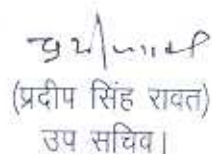 (प्रदीप सिंह रावत)
उप सचिव।